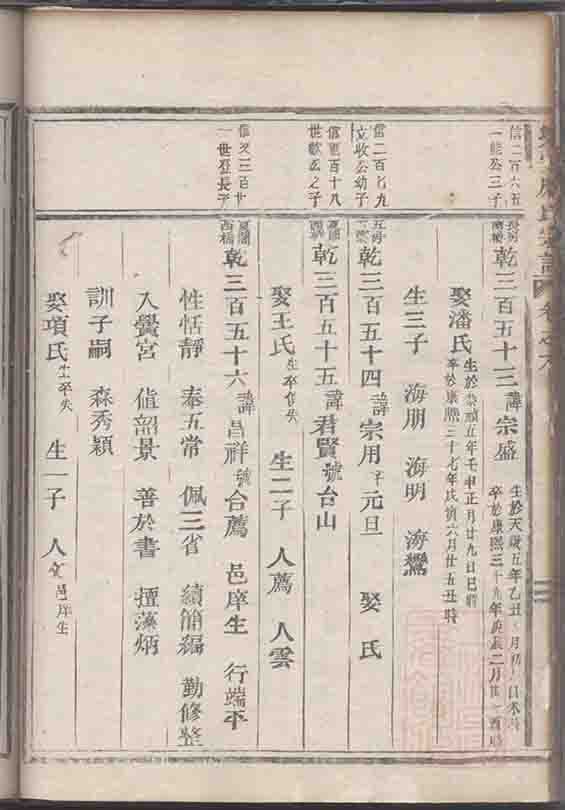 信二百六五
一能公三子
乾三百五十三 諱宗盛 生於天啟五年乙丑 月初 日未時
卒於康熙三十九年庚辰二月 酉時
娶潘氏 生於崇禎五年壬申正月廿九日巳時
卒於康熙三十七年戊寅六月廿五丑時
生三子 海朋 海明 海鸞
信二百七九
立收公幼子
乾三百五十四 諱宗用 字元旦 娶 氏
信 百十八
世 公之子
乾三百五十五 諱君賢 號台山
娶王氏 生卒俱失 生二子 人薦 人雲
信 三百廿
一世 公長子
西橋
乾三百五十六 諱昌祥 號合薦 邑庠生 行端平
性恬靜 奉五常 佩三省 績簡編 勤修整
入黌宮 值韶景 善於書 擅藻炳
訓子嗣 森秀穎
娶項氏 生卒失 生一子 人 邑庠生